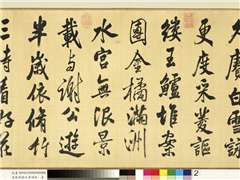 久賡白雪詠
更度采菱謳
縷玉鱸堆案
團金橘滿洲
水宮無限景
載與謝公遊
半歲依脩竹
三時看好花